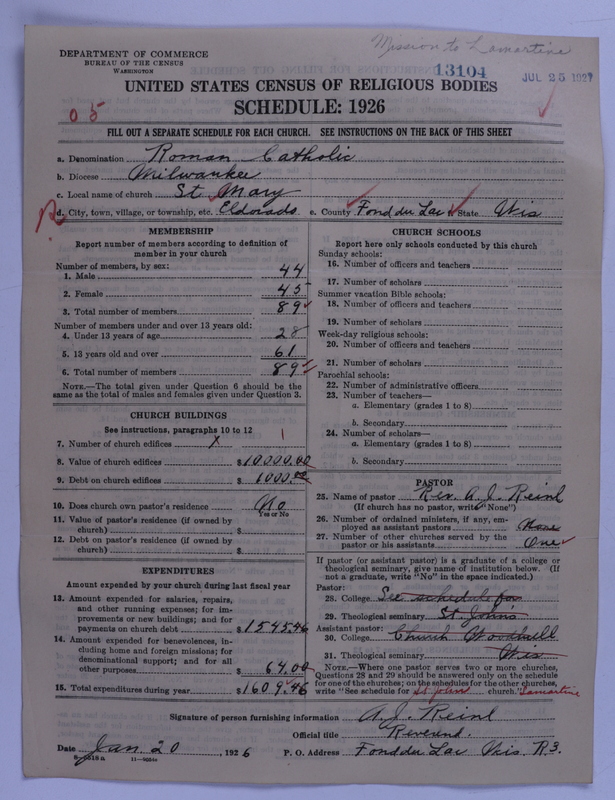 Mission to Lamartine
DEPARTMENT OF COMMERCE
BUREAU OF THE CENSUS
WASHINGTON
13104
JUL 25 1927
UNITED STATES CENSUS OF RELIGIOUS BODIES
SCHEDULE: 1926
05
FILL OUT A SEPARATE SCHEDULE FOR EACH CHURCH. SEE INSTRUCTIONS ON THE BACK OF THIS SHEET
a. Denomination Roman Catholic
b. Diocese Milwaukee
c. Local name of church St Mary
d. City, town, village, or township, etc. Eldorado e. County Fond du Lac f. State Wis
MEMBERSHIP
Report number of members according to definition of
member in your church
Number of members, by sex:
1. Male 44
2. Female 45
3. Total number of members 89
Number of members under and over 13 years old:
4. Under 13 years of age 28
5. 13 years old and over 61
6. Total number of members 89
NOTE.—The total given under Question 6 should be the
same as the total of males and females given under Question 3.
CHURCH BUILDINGS
See instructions, paragraphs 10 to 12
7. Number of church edifices X 1
8. Value of church edifices $10000.00
9. Debt on church edifices $1000.00
10. Does church own pastor's residence No
Yes or No
11. Value of pastor's residence (if owned by
church) $
12. Debt on pastor's residence (if owned by
church) $
EXPENDITURES
Amount expended by your church during last fiscal year
13. Amount expended for salaries, repairs,
and other running expenses; for im-
provements or new buildings; and for
payments on church debt $1545.46
14. Amount expended for benevolences, in-
cluding home and foreign missions; for
denominational support; and for all
other purposes $64.00
15. Total expenditures during year $1609.46
CHURCH SCHOOLS
Report here only schools conducted by this church
Sunday schools:
16. Number of officers and teachers
17. Number of scholars
Summer vacation Bible schools:
18. Number of officers and teachers
19. Number of scholars
Week-day religious schools:
20. Number of officers and teachers
21. Number of scholars
Parochial schools:
22. Number of administrative officers
23. Number of teachers—
a. Elementary (grades 1 to 8)
b. Secondary
24. Number of scholars—
a. Elementary (grades 1 to 8)
b. Secondary
PASTOR
25. Name of pastor Rev. A. J. Reinl
(If church has no pastor, write "None")
26. Number of ordained ministers, if any, em-
ployed as assistant pastors None
27. Number of other churches served by the
pastor or his assistants One
If pastor (or assistant pastor) is a graduate of a college or
theological seminary, give name of institution below. (If
not a graduate, write "No" in the space indicated.)
Pastor:
28. College See schedule for
29. Theological seminary St. John's
Assistant pastor:
30. College Church Woodhull
31. Theological seminary Wis
NOTE.—Where one pastor serves two or more churches,
Questions 28 and 29 should be answered only on the schedule
for one of the churches; on the schedules for the other churches,
write "See schedule for St Johns church." Lamartine
Signature of person furnishing information A. J. Reinl
Official title Reverend.
Date Jan. 20, 1926 P. O. Address Fond du Lac Wis. R3.
11—9054